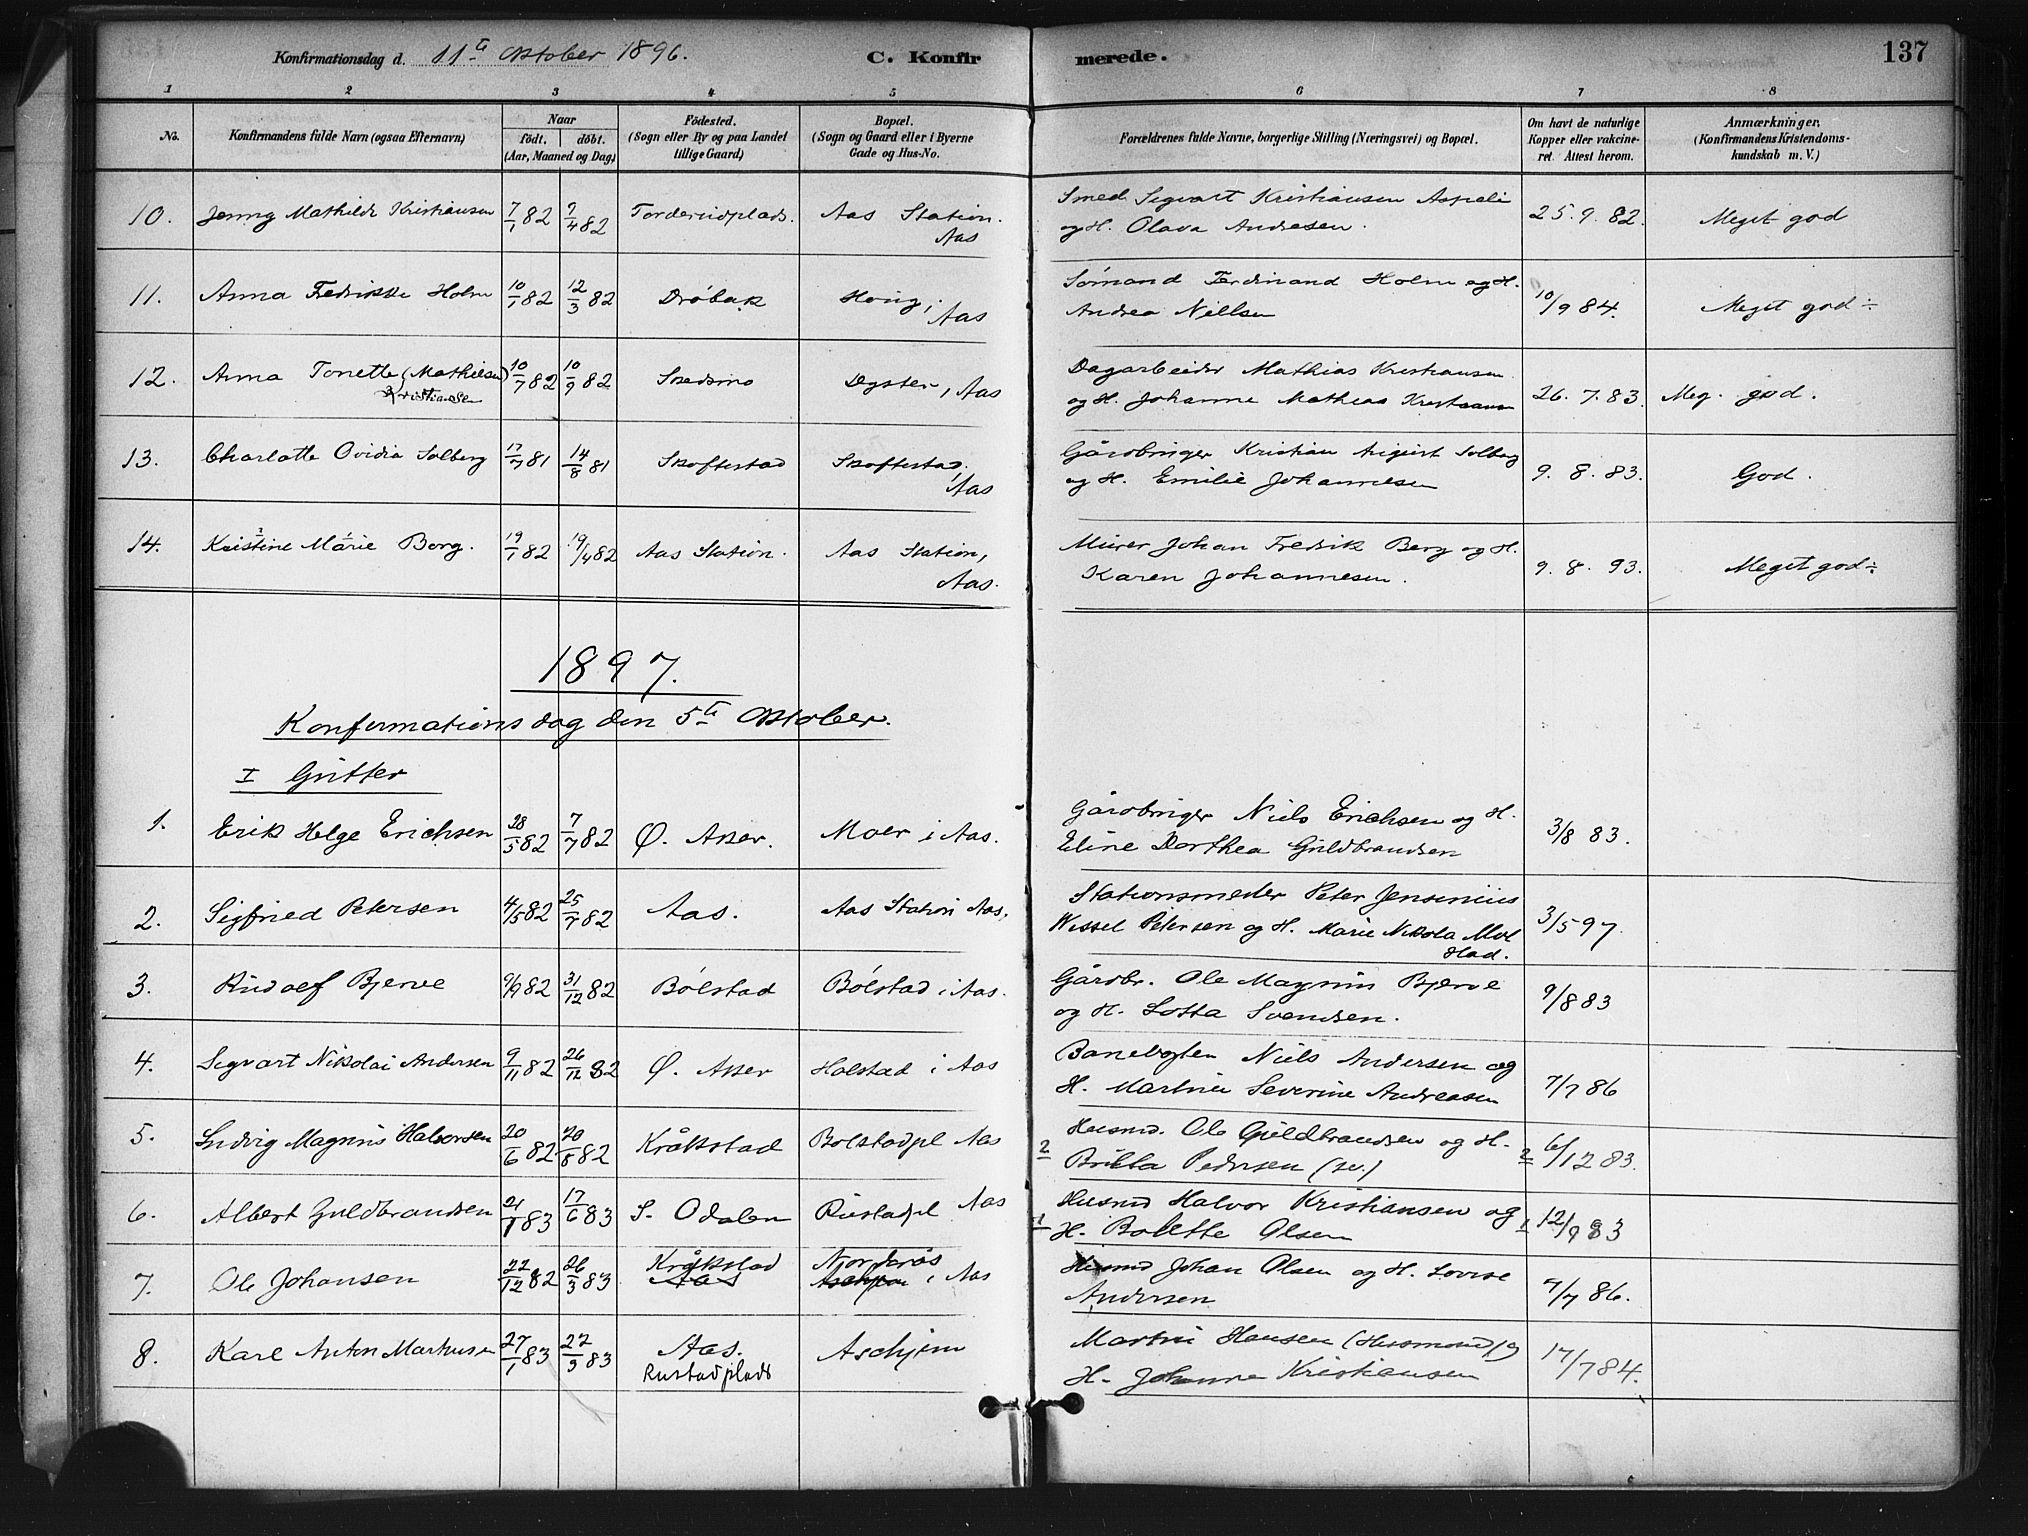 Konfirmationsdag d. 11te Oktober 1896.
C. Konfirmerede.
137
1 2 3 4 5 6 7 8
No.
Konfirmandens fulde Navn (ogsaa Efternavn)
Naar
födt. döbt.
(Aar, Maaned og Dag)
Födested.
(Sogn eller By og paa Landet
tillige Gaard)
Bopæl.
(Sogn og Gaard eller i Byerne
Gade og Hus-No.
Forældrenes fulde Navne, borgerlige Stilling (Næringsvei) og Bopæl.
Om havt de naturlige
Kopper eller vakcine-
ret. Attest herom.
Anmærkninger.
(Konfirmandens Kristendoms-
kundskab m. V.)
10. Jenny Mathilde Kristiansen 7/1 82 9/4 82 Torderudplads. Aas Station. Aas
Smed Segvart Kristiansen Aspeli
og H. Olava Andresen. 25. 9. 82. Meget god
11. Anna Fredrikke Holm 10/1 82 12/3 82 Dröbak Houg, Aas
Sömand Ferdinand Holm og H.
Andrea Nielsen 10/9 84. Meget god ÷
12. Anna Tonette (Mathiesen) Kristiansen 10/7 82 10/9 82 Skedsmo Dyster, Aas
Dagarbeider Mathias Kristiansen
og H. Johanne Mathea Kristiansen 26. 7. 83. Meg. god.
13. Charlotte Ovidia Solberg 17/7 81 14/8 81 Skoftestad Skoftestad, Aas
Gårdbruger Kristian August Solberg
og H. Emilie Johannesen 9. 8. 83. God.
14. Kristine Marie Berg. 19/1 82 19/4 82 Aas Station. Aas Station, Aas.
Murer Johan Fredrik Berg og H.
Karen Johannesen. 9. 8. 93. Meget god ÷
1897.
Konfirmationsdag den 5te Oktober.
I Gutter
1. Erik Helge Erichsen 28/5 82 7/7 82 Ø. Aker. Moer i Aas.
Gårdbruger Niels Erichsen og H.
Eline Dorthea Guldbrandsen 3/8 83.
2. Sigfried Petersen 4/5 82 25/7 82 Aas. Aas Station Aas.
Stationsmester Peter Jensenius
Wessel Petersen og H. Marie Nikola Mol
stad. 3/5 97.
3. Rudolf Bjerve 9/9 82 31/12 82 Bölstad Bölstad i Aas.
Gårdbr. Ole Magnus Bjerve
og H. Lotta Svendsen. 9/8 83
4. Segvart Nikolai Andersen 9/11 82 26/12 82 Ø. Aker Holstad i Aas
Banevogten Niels Andersen og
H. Martine Severine Andreasen 7/7 86
5. Ludvig Magnus Halvorsen 20/6 82 20/8 82 Kråkstad Bolstadpl Aas
2 Husmd. Ole Guldbrandsen og H.
Britta Pedersen (sv.) 2 6/12 83.
6. Albert Guldbrandsen 21/1 83 17/6 83 S. Odalen Rustadpl Aas
1 Husmd Halvor Kristiansen og
H. Bolette Olsen 1 12/9 83
7. Ole Johansen 22/12 82 26/3 83 Kråkstad Aas Norderås i Aas
Husmd Johan Olsen og H. Lovise
Andersen 7/7 86.
8. Karl Anton Martinsen 27/1 83 27/3 83 Aas. Rustadplads Aschjem
Martin Hansen (Husmand) og
H. Johanne Kristiansen 17/7 84.